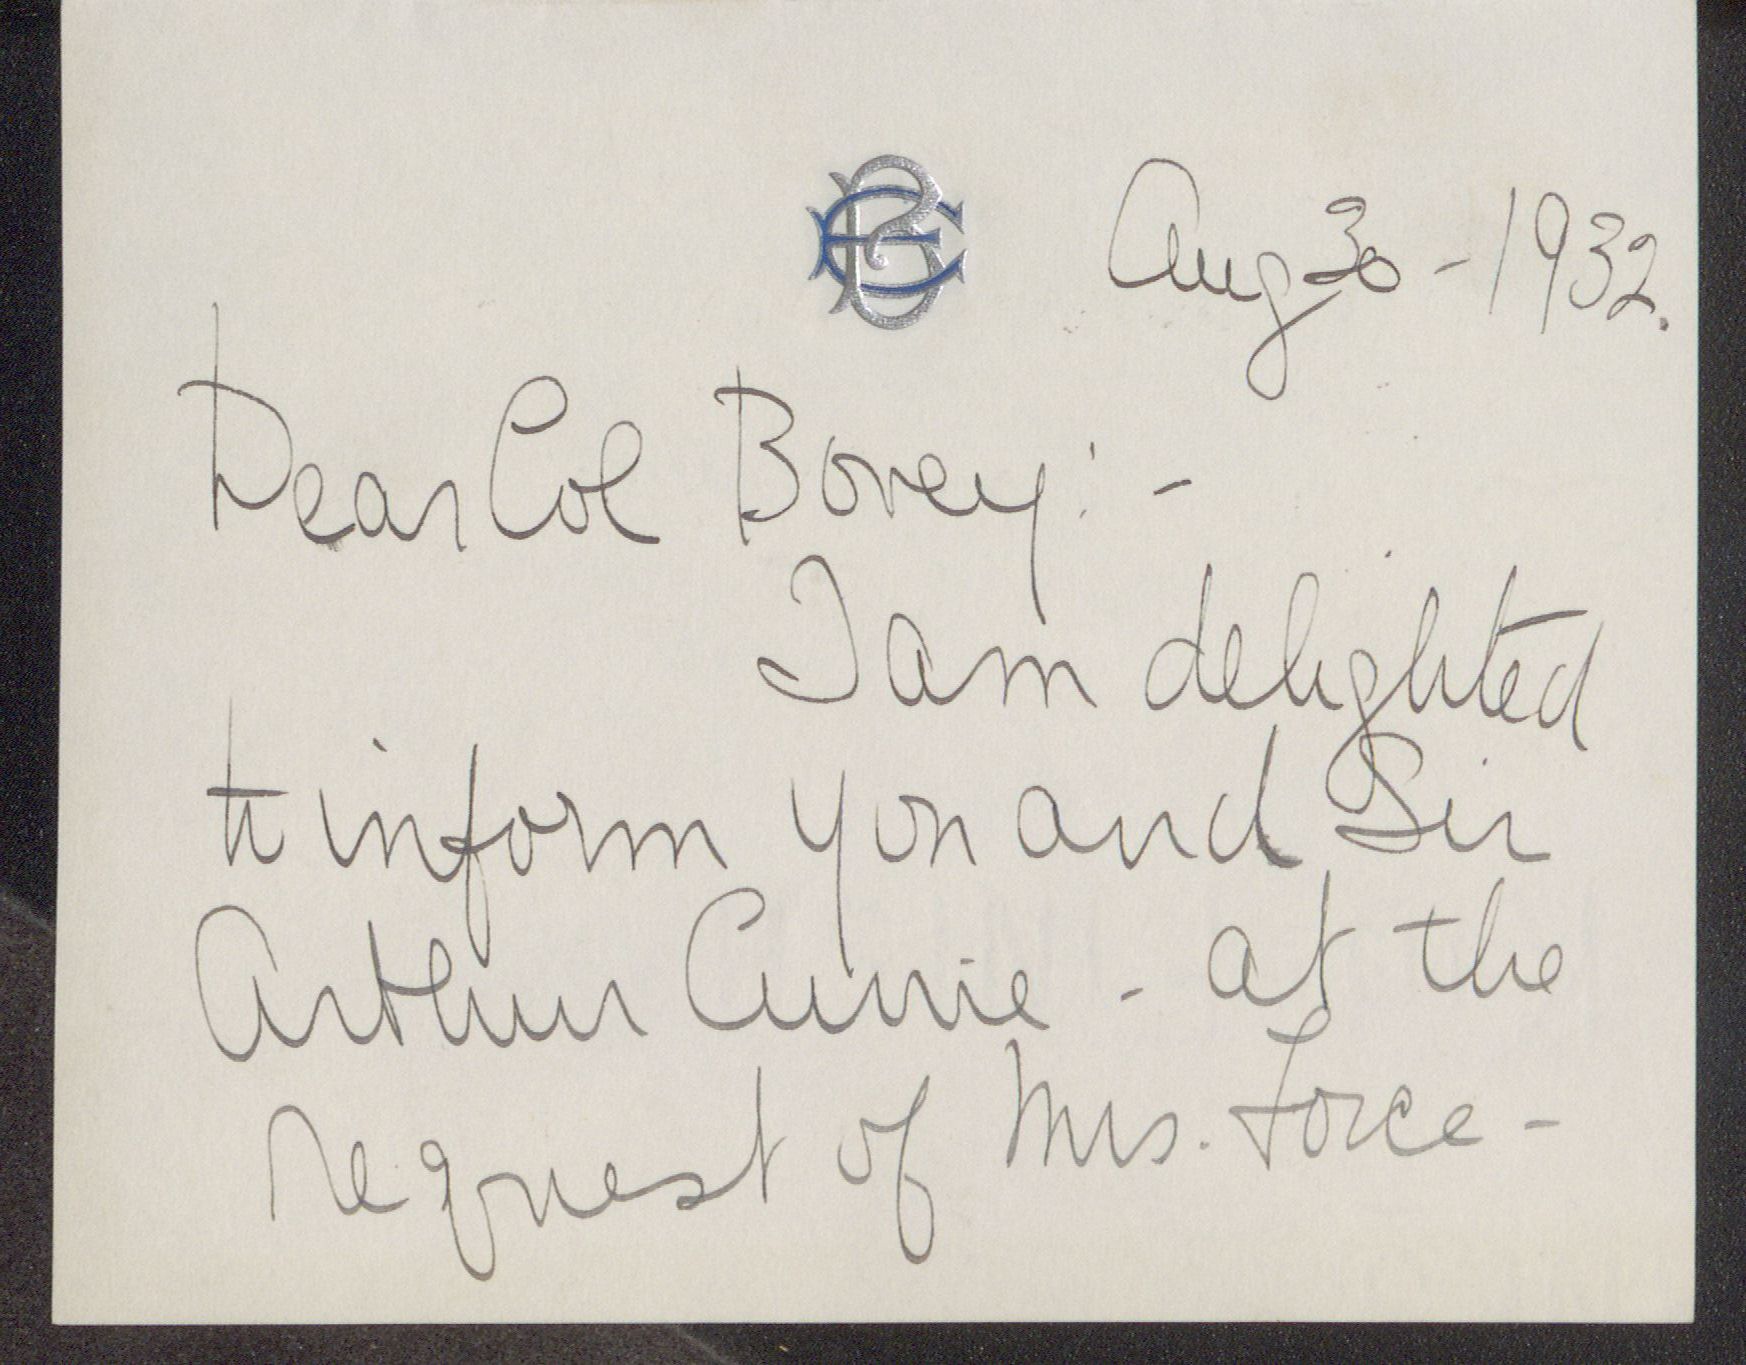 Aug 30 - 1932.
Dear Col Bovey: -
I am delighted
to inform you and Sir
Arthur Currie - at the
request of Mrs. Force -